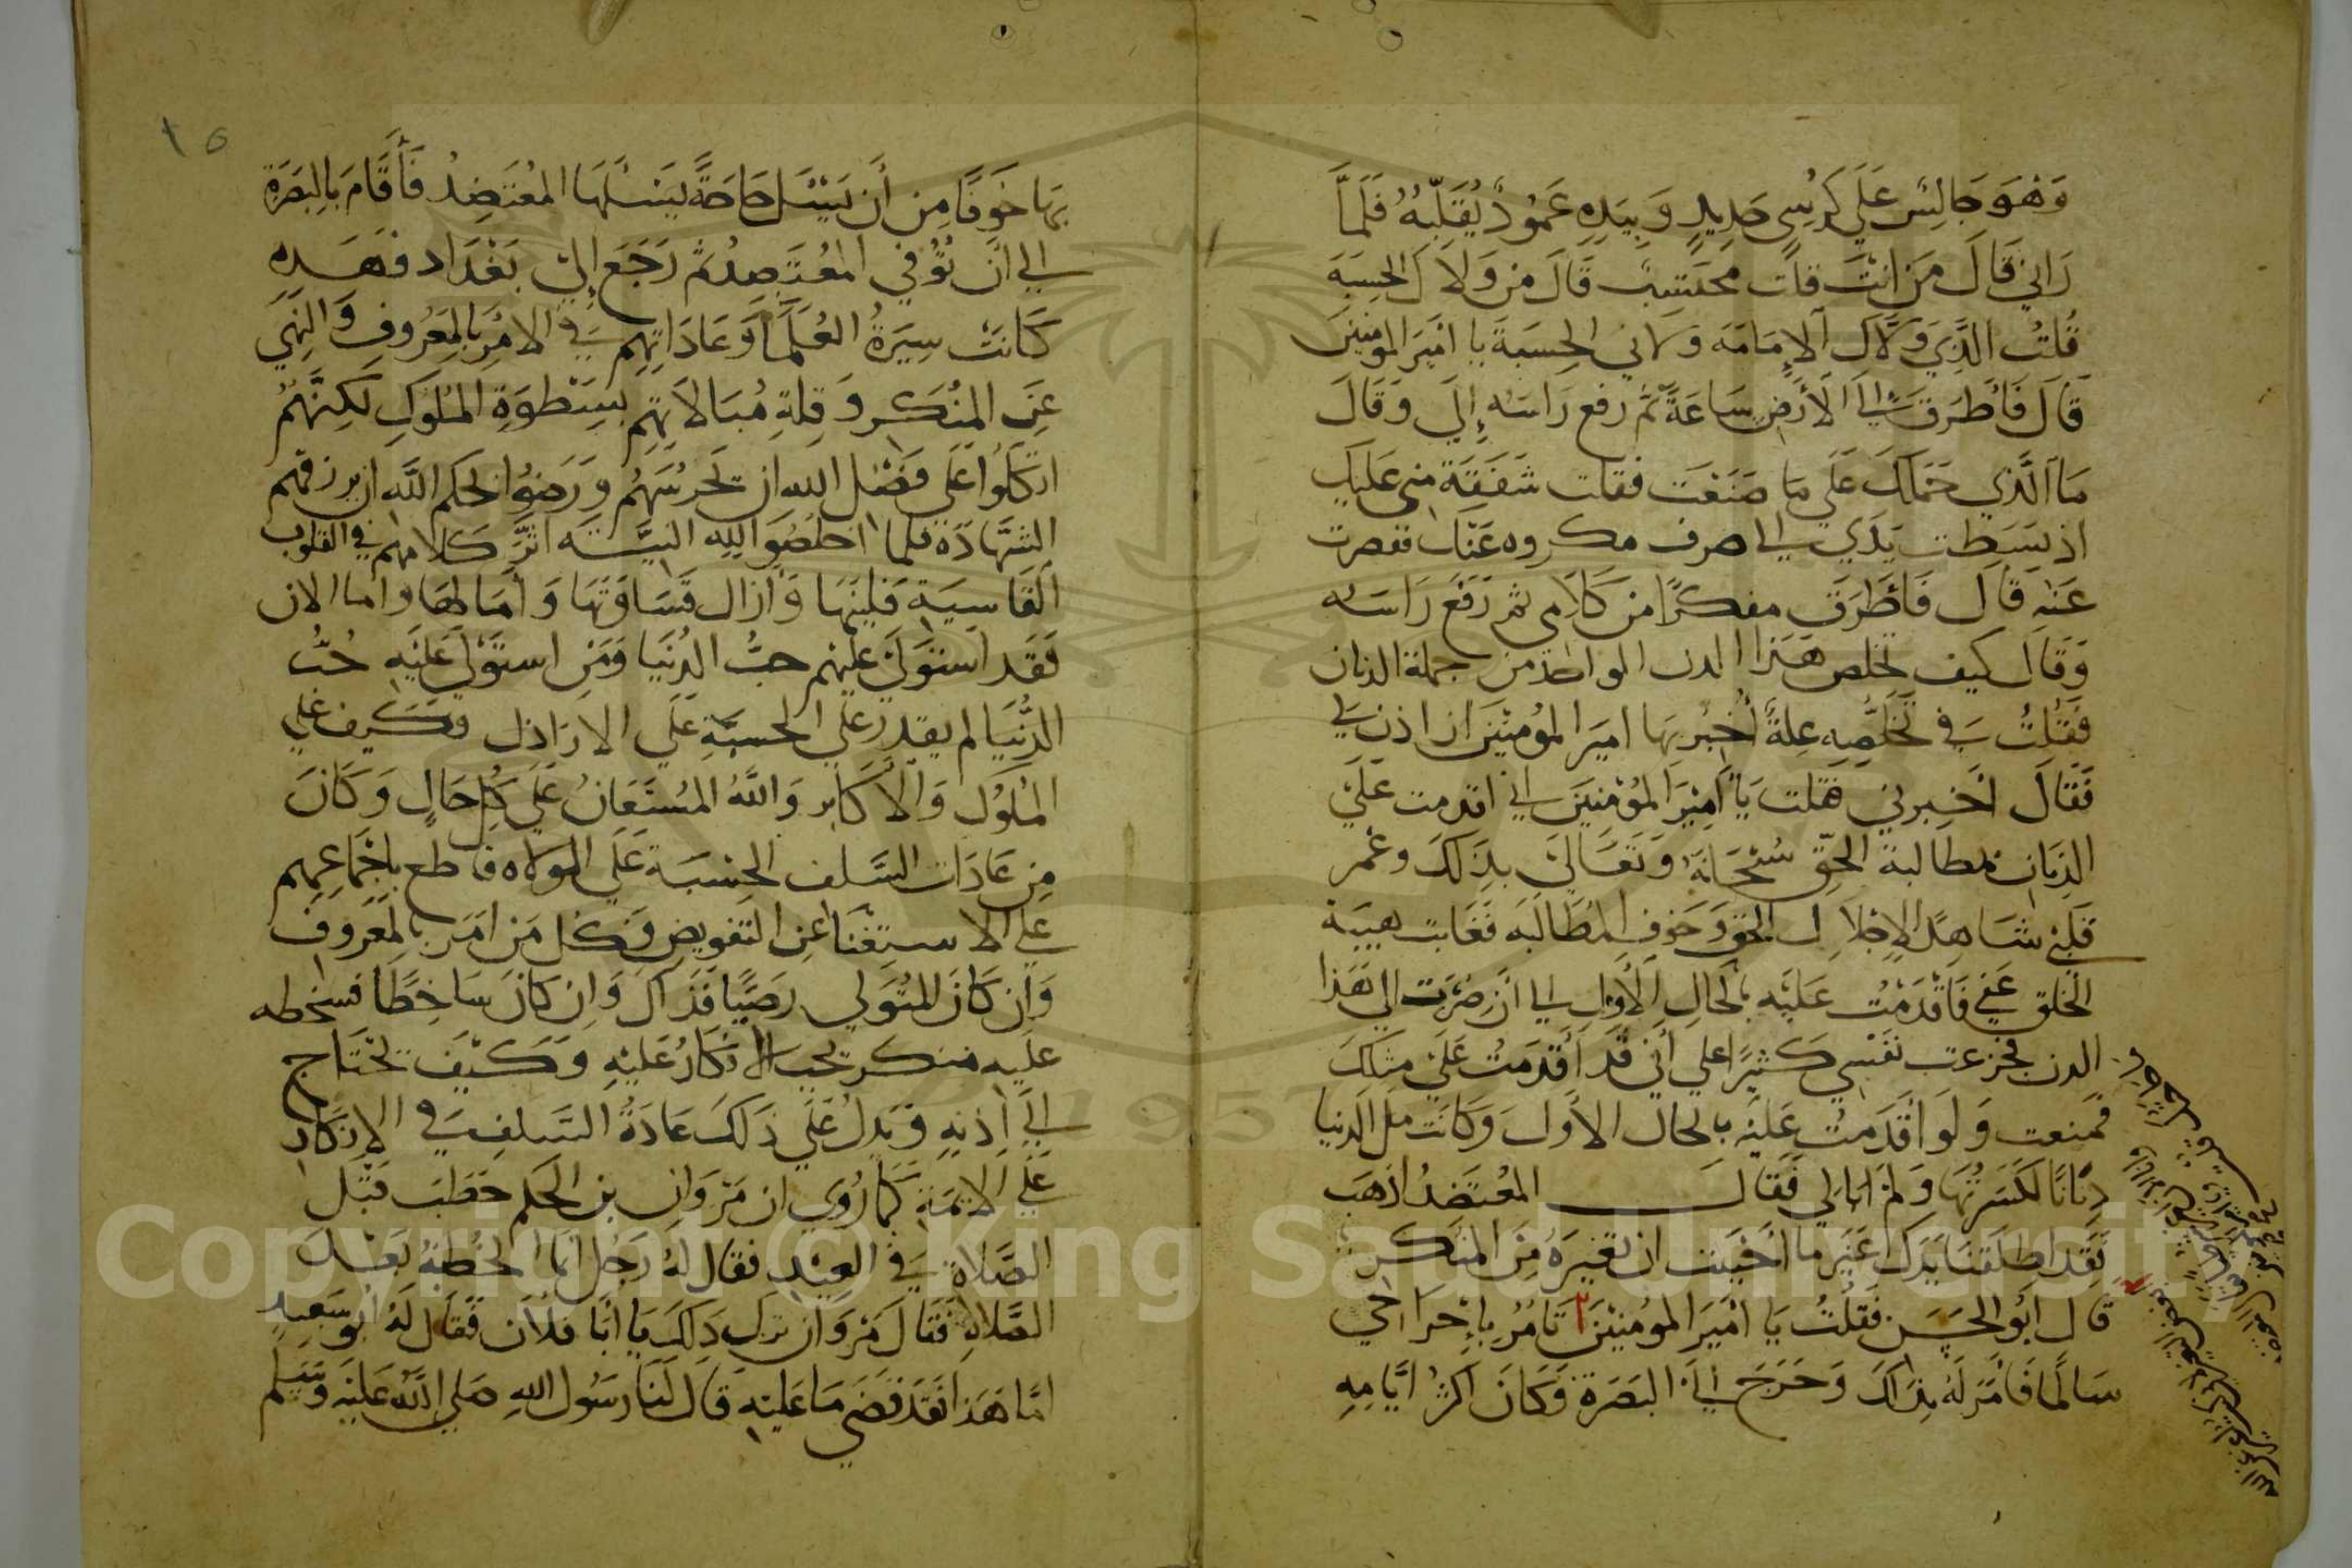 وَهوَ جَالِسٌ عَلَى كُرسِي حَدِيدٍ وَبِيَدِهِ عَمُودٌ يُقَلِّبُهُ فَلَمَّا
رَانِي قَالَ مَن انتَ قلت محتَسِبٌ قَالَ مَن وَلاكَ الحِسبَة
قُلتُ الَّذِي وَلاكَ الإمَامَة وَلانِي الحِسبَةَ يا امَيرَ المومنين
قَالَ فَأطرَقَ إلَى الأرضِ سَاعَةً ثم رفع رَاسَه إِلَي وَقَالَ
مَا الَّذِي حَمَلَكَ عَلَى ما صَنَعتَ فقلت شَفَقَة مِني عَلَيكَ
اذ بَسَطت يَدَي الى صرف مكروه عَنكَ فقصرت
عَنه قَالَ فَأطرَقَ مفكرًا من كَلامِي ثم رَفَعَ رَاسَه
وَقَالَ كيف تخلص هَذا الدن الواحد من جملة الدنان
فَقُلتُ في تَخَلُّصِه عِلةٌ أُخبرُ بهَا امِيَر المؤمنِينَ ان اذن لي
فَقَالَ أخبِرني فَقلت يَا أمِيرَ المُؤمنِينَ اني اقدمت عَلَى
الدِنَانِ بمطالبة الحقِّ سُبحَانَهُ وَتعَالَى بذلكَ وغمر
قَلبي شَاهِدُ الإجلالِ الحق وَخَوفِ المُطَالَبَه فَغَابت هَيبَة
الخلق عَني فَأقدَمتُ عَلَيه بالحَالِ الأول الى أن صِرت الى هَذا
الدن فجزعت نَفسِي كثيرًا على أني قَد أقدَمتُ عَلَى مِثلكَ
فمنعت وَلَو أقدَمتُ عَلَيه بالحال الأول وَكانَت ملء الدنيا
دنَانًا لكَسَرتُهَا وَلم أبالي فَقَال المعُتضدُ اذهَب
فَقَد اطلقنَا يَدَك غَيّر ما أحبَبت ان تغيرَهُ مِنَ المنكر
قال ابُو الحَسَن فقُلتُ يَا امَيرَ المومنِينَ تَامُرُ بإخرَاجي
سَالِمًا فَأمَرَ لَهُ بِذلكَ وَخَرَجَ إلى البَصَرة فَكَانَ اكثرُ ايَّامِهِ
١٥
بهَا خَوفًا مِن أن يَسئل حَاجَةً يَسئلهَا المعُتضِدُ فَأقَامَ بِالبَصرَةِ
الى ان تُوُفي المعُتضِدُ ثم رَجَعَ إلَى بَغدَاد فهَذِه
كَانَت سِيرَةُ العُلَمَاء وَعَادَاتِهِم في الامرِ بالمعَرُوفِ وَالنهي
عَنِ المنُكَر وَقِلةِ مُبَالاتِهِم بِسَطوَةِ المُلوكِ لكِنَّهُم
اتكلُوا عَلى فَضل الله ان يَحرسَهُم وَرَضوا بحكم اللَّه ان يرزقهم
الشهَادَة فلما اخلصُوا لِلهِ النيَّة اثَّر كَلامهم في القلوب
القَاسِيَةِ فَلينَهَا وَأزال قسَاوَتهَا وَأمَالهَا واما الان
فَقَد استولَى عليهم حبُّ الدُنيَا وَمَنِ استَولى عَلَيه حُبُّ
الدُّنيَا لم يقدر على الحسبَةِ عَلَى الاراذل فكَيف على
المُلوك وَالأكَابر وَاللَّهُ المسُتَعَانُ عَلَى كُلِ حَالٍ وَكَانَ
مِن عَادَات السَّلف الحِسبَة عَلَى الولاه قاطع باجماعهم
عَلى الاستِغنَاء عَنِ التفويض فكل مَن امَر بالمعرُوف
وَان كَانَ المتُوَلي رضِيًا فَذاك وَإن كَانَ سَاخِطًا فسخطه
عَلَيه منكر يجب الانكَارُ عَليهِ وَكَيف يحتَاج
الَى اذنه وَيَدلُ عَلَى ذلكَ عَادَةُ السَلفِ في الإنكارِ
عَلى الائمَة كَما رُوي ان مَروَان بن الحَكم خَطب قَبل
الصَّلاةِ في العِيدِ فقال لهُ رَجُل انما الخطبَةُ بَعد
الصَّلاةِ فقَالَ مَروَان ترك ذلكَ يَا ابَا فلان فقال لَهُ ابو سَعِيدٍ
امَّا هَذا فَقد قَضى مَا عَليهِ قَال لَنَا رسُول اللهِ صَلى اللَّهُ عَليه وَسَلم